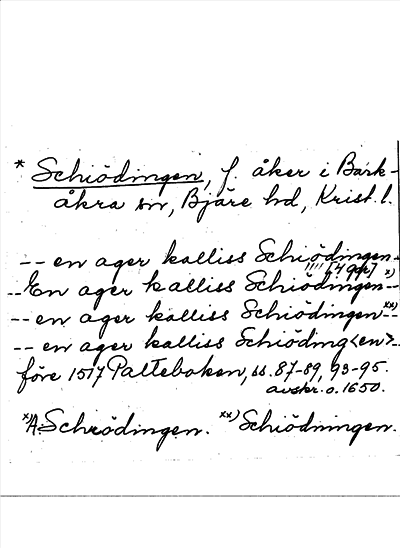 * Schiödingen, f. åker i Bark-
åkra sn, Bjäre hd, Krist. l.
-- en ager kalliss Schiödingen--
"" [4 ggr]
-- En ager kalliss Schiödingen x)--
-- en ager kalliss Schiödingen xx)--
-- en ager kalliss Schiöding<en>--
före 1517 Palteboken, ss. 87-89, 93-95.
avskr. o. 1650.
x) A: Schrödingen. xx) Schiödningen.